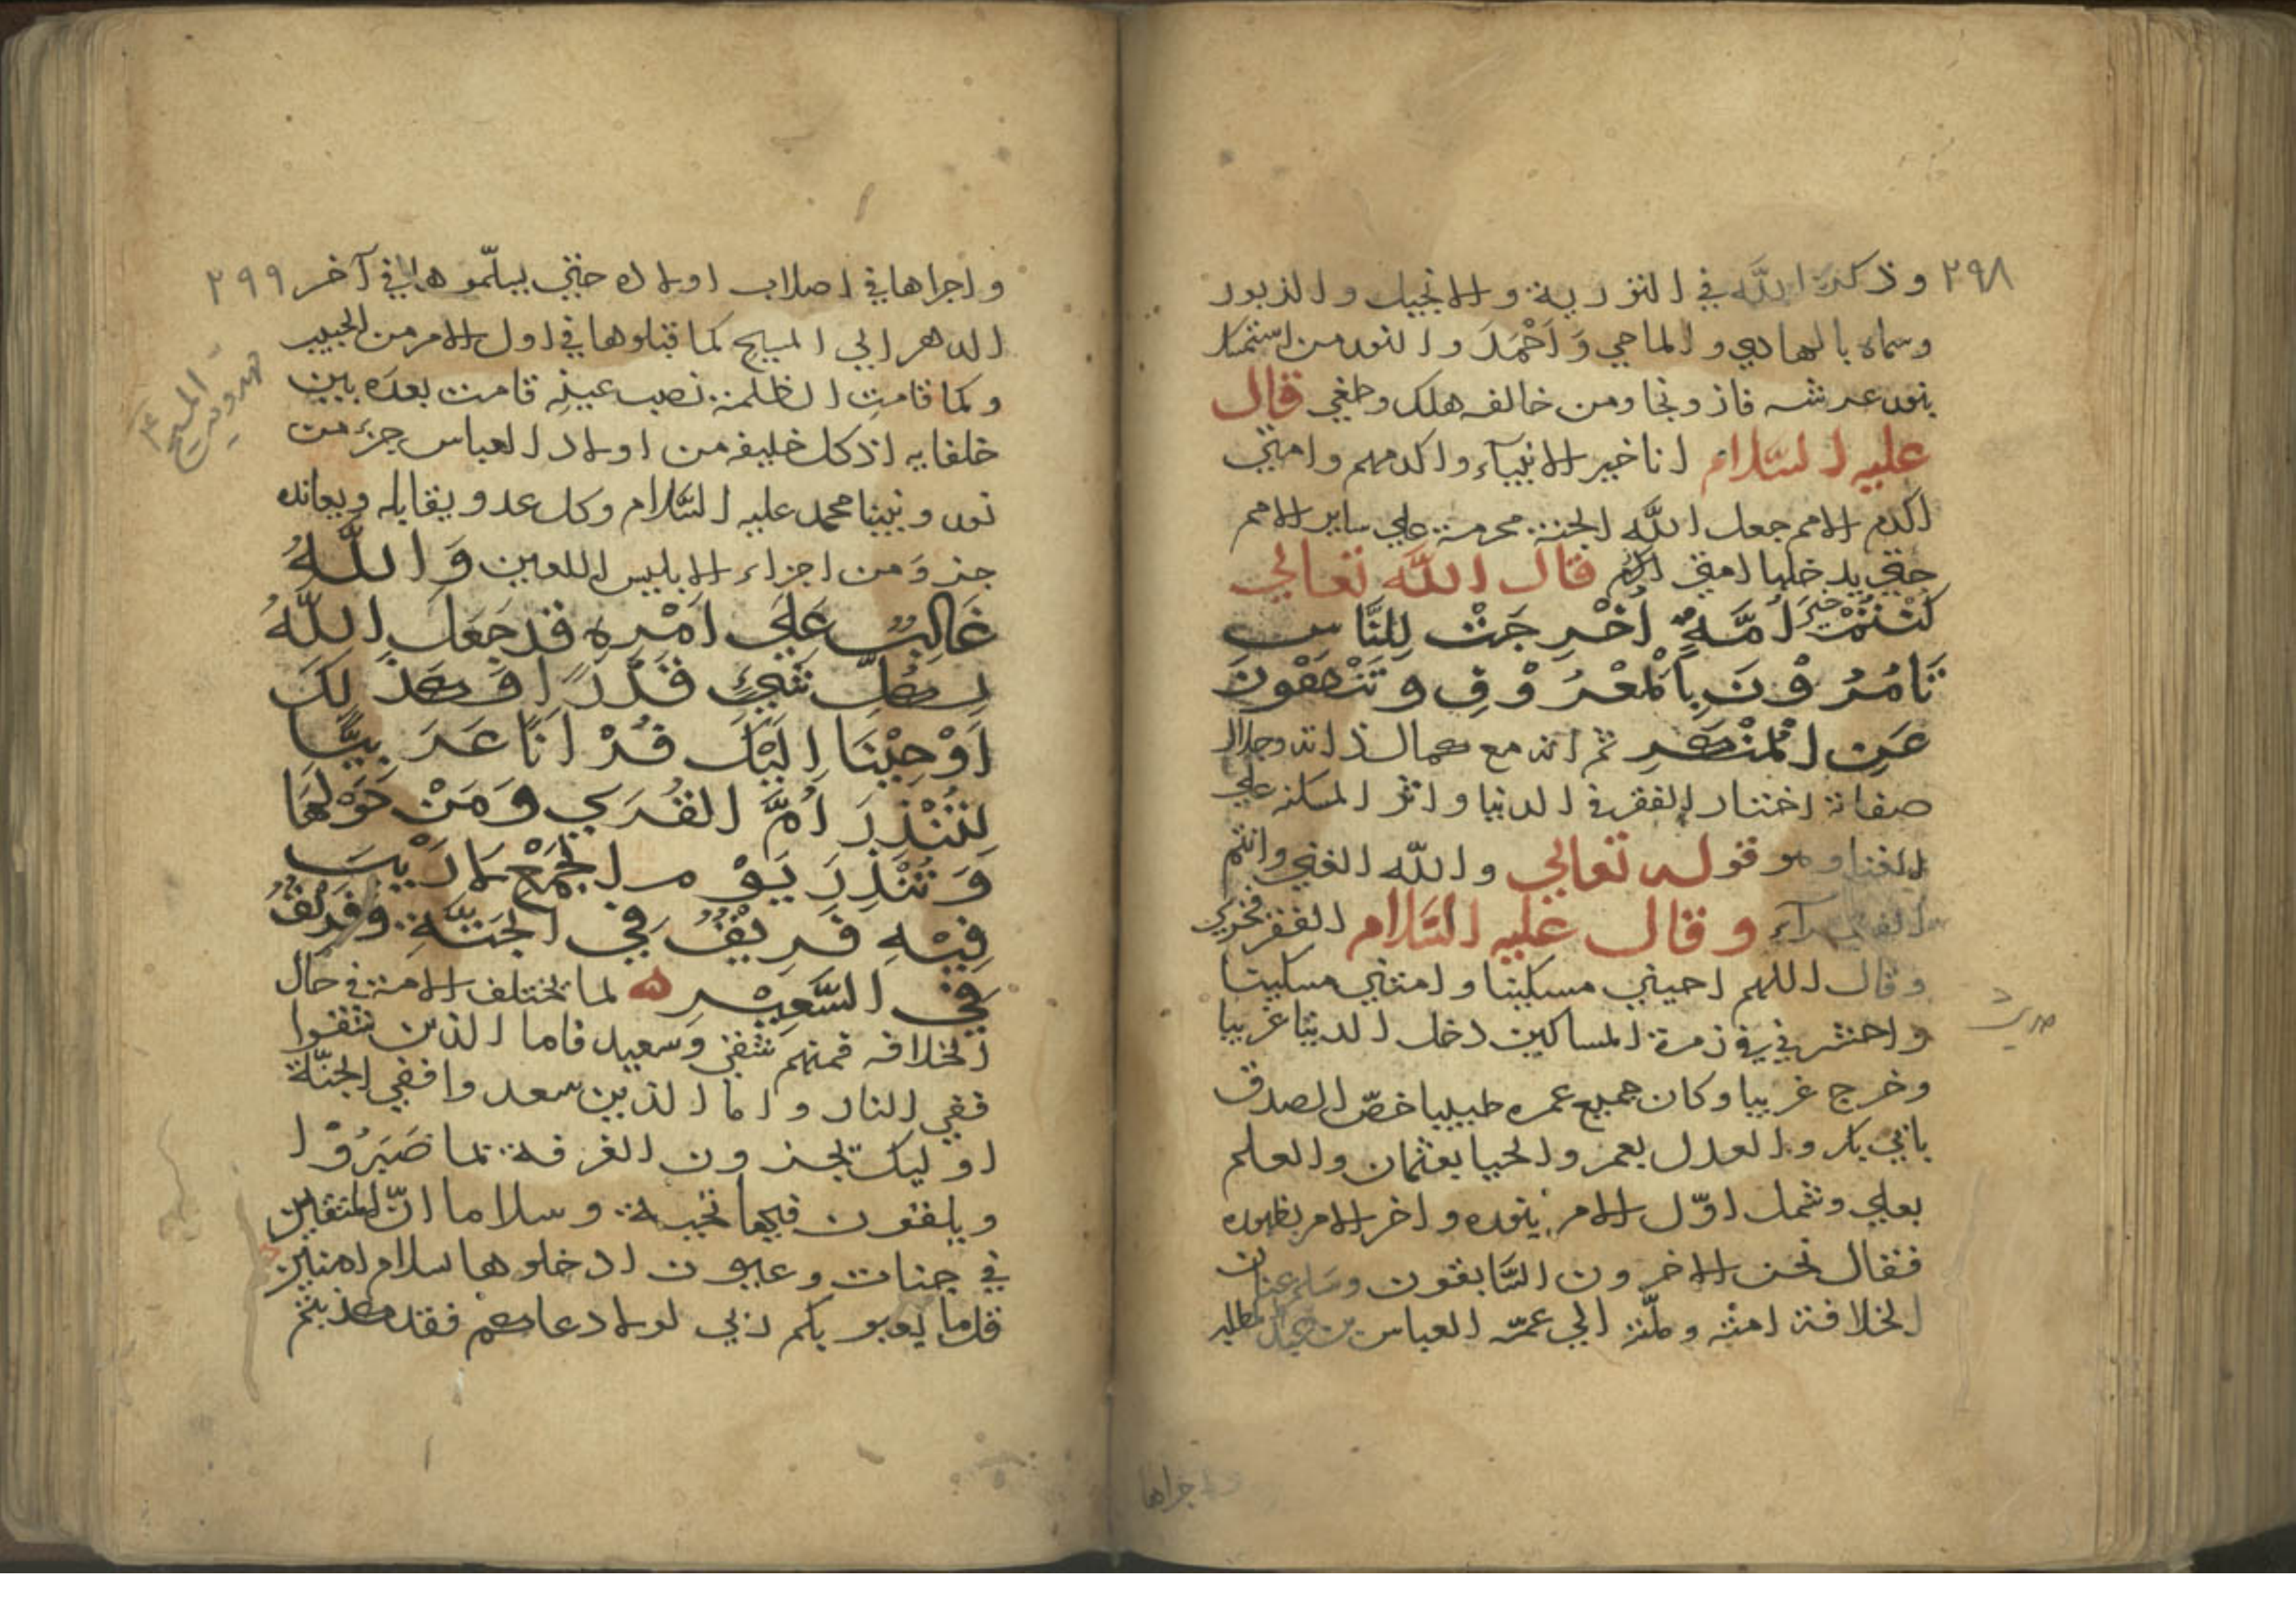 ٢٩٨
وذكره الله في التورية والانجيل والزبور
وسماه بالهادي والماحي وَاَحْمَدَ والنور من استمسك
بنور عرشه فاز ونجا ومن خالفه هلك وطغي قال
عليه السّلام انا خير الانبيآء واكرمهم وامتي
اكرم الامم جعل الله الجنة محرمة علي ساير الامم
حتي يدخلها امتي قال اللّه تعالي
كُنْتُمْ خَيرَ اُمَّةٍ اُخْرِجَتْ لِلنَّاسِ
تَامُرُوْنَ بِاَلْمَعْرُوْفِ وتَنْهَوْنَ
عَنِ الْمُنْكَرِ ثم انه مع كمال ذاته وجلال
صفاته اختار الفقر في الدنيا واثر المسكنه علي
الغنا وهو قوله تعالي واللّه الغني وانتم
الفقرآء وقال عليه السّلام الفقر فخري
وقال اللهم احيني مسكينا وامتني مسكينا
واحشرني في زمرة المساكين دخل الدنيا غريبا
حديث
وخرج غريبا وكان جميع عمره طبيبا خصّ الصدق
بابي بكر والعدل بعمر والحيا بعثمان والعلم
بعلي وشمل اوّل الامر بنوره واخر الامر بظهوره
فقال نحن الاخرون السّابقون وسلم عنان
الخلافة امته وملّته الي عمّه العباس بن عبد المطلب
واجراها
٢٩٩
واجراها في اصلاب اولاده حتي يسلّموها في آخر
الدهر الي المسيح كما قبلوها في اول الامر من الحبيب
وكما قامتِ الظلمة نصب عينِه قامت بعدَه بين
خلفايه اذ كل خليفه من اولاد العباس جزء من
نور نبينا محمد عليه السّلام وكل عدو يقابله ويعانده
جزوَ من اجزاء الابليس اللعين وَاللّهُ
غَالِبٌ عَلَي اَمْرِهِ قد جَعَلَ اللّهُ
لِكُلِّ شَيْءٍ قَدْرًا وَكَذلِكَ
اَوْحَيْنَا اِلَيْكَ قُرْاٰنًا عَرَبِيًّا
لِتُنْذِرَ اُمَّ القُرَي وَمَنْ حَوْلَهَا
وَتُنْذِرَ يَوْم الجَمْعِ لَا رَيْبَ
فِيْهِ فَرِيْقٌ فِي الجَنَّةِ وَفَرِيقٌ
فِي السَّعِيْرِ ه لما تختلف الامة في حال
الخلافه فمنهم شقي وسعيد فاما الذين شقوا
ففي النار واما الذين سعدوا ففي الجنّة
اوليك يجزون الغرفة بما صَبَرُوْا
ويلقون فيها تحية وسلاما انّ المتقين
في جنات وعيون ادخلوها سلام امنين
قل ما يعبو بكم ربي لولا دعاوكم فقد كذبتم